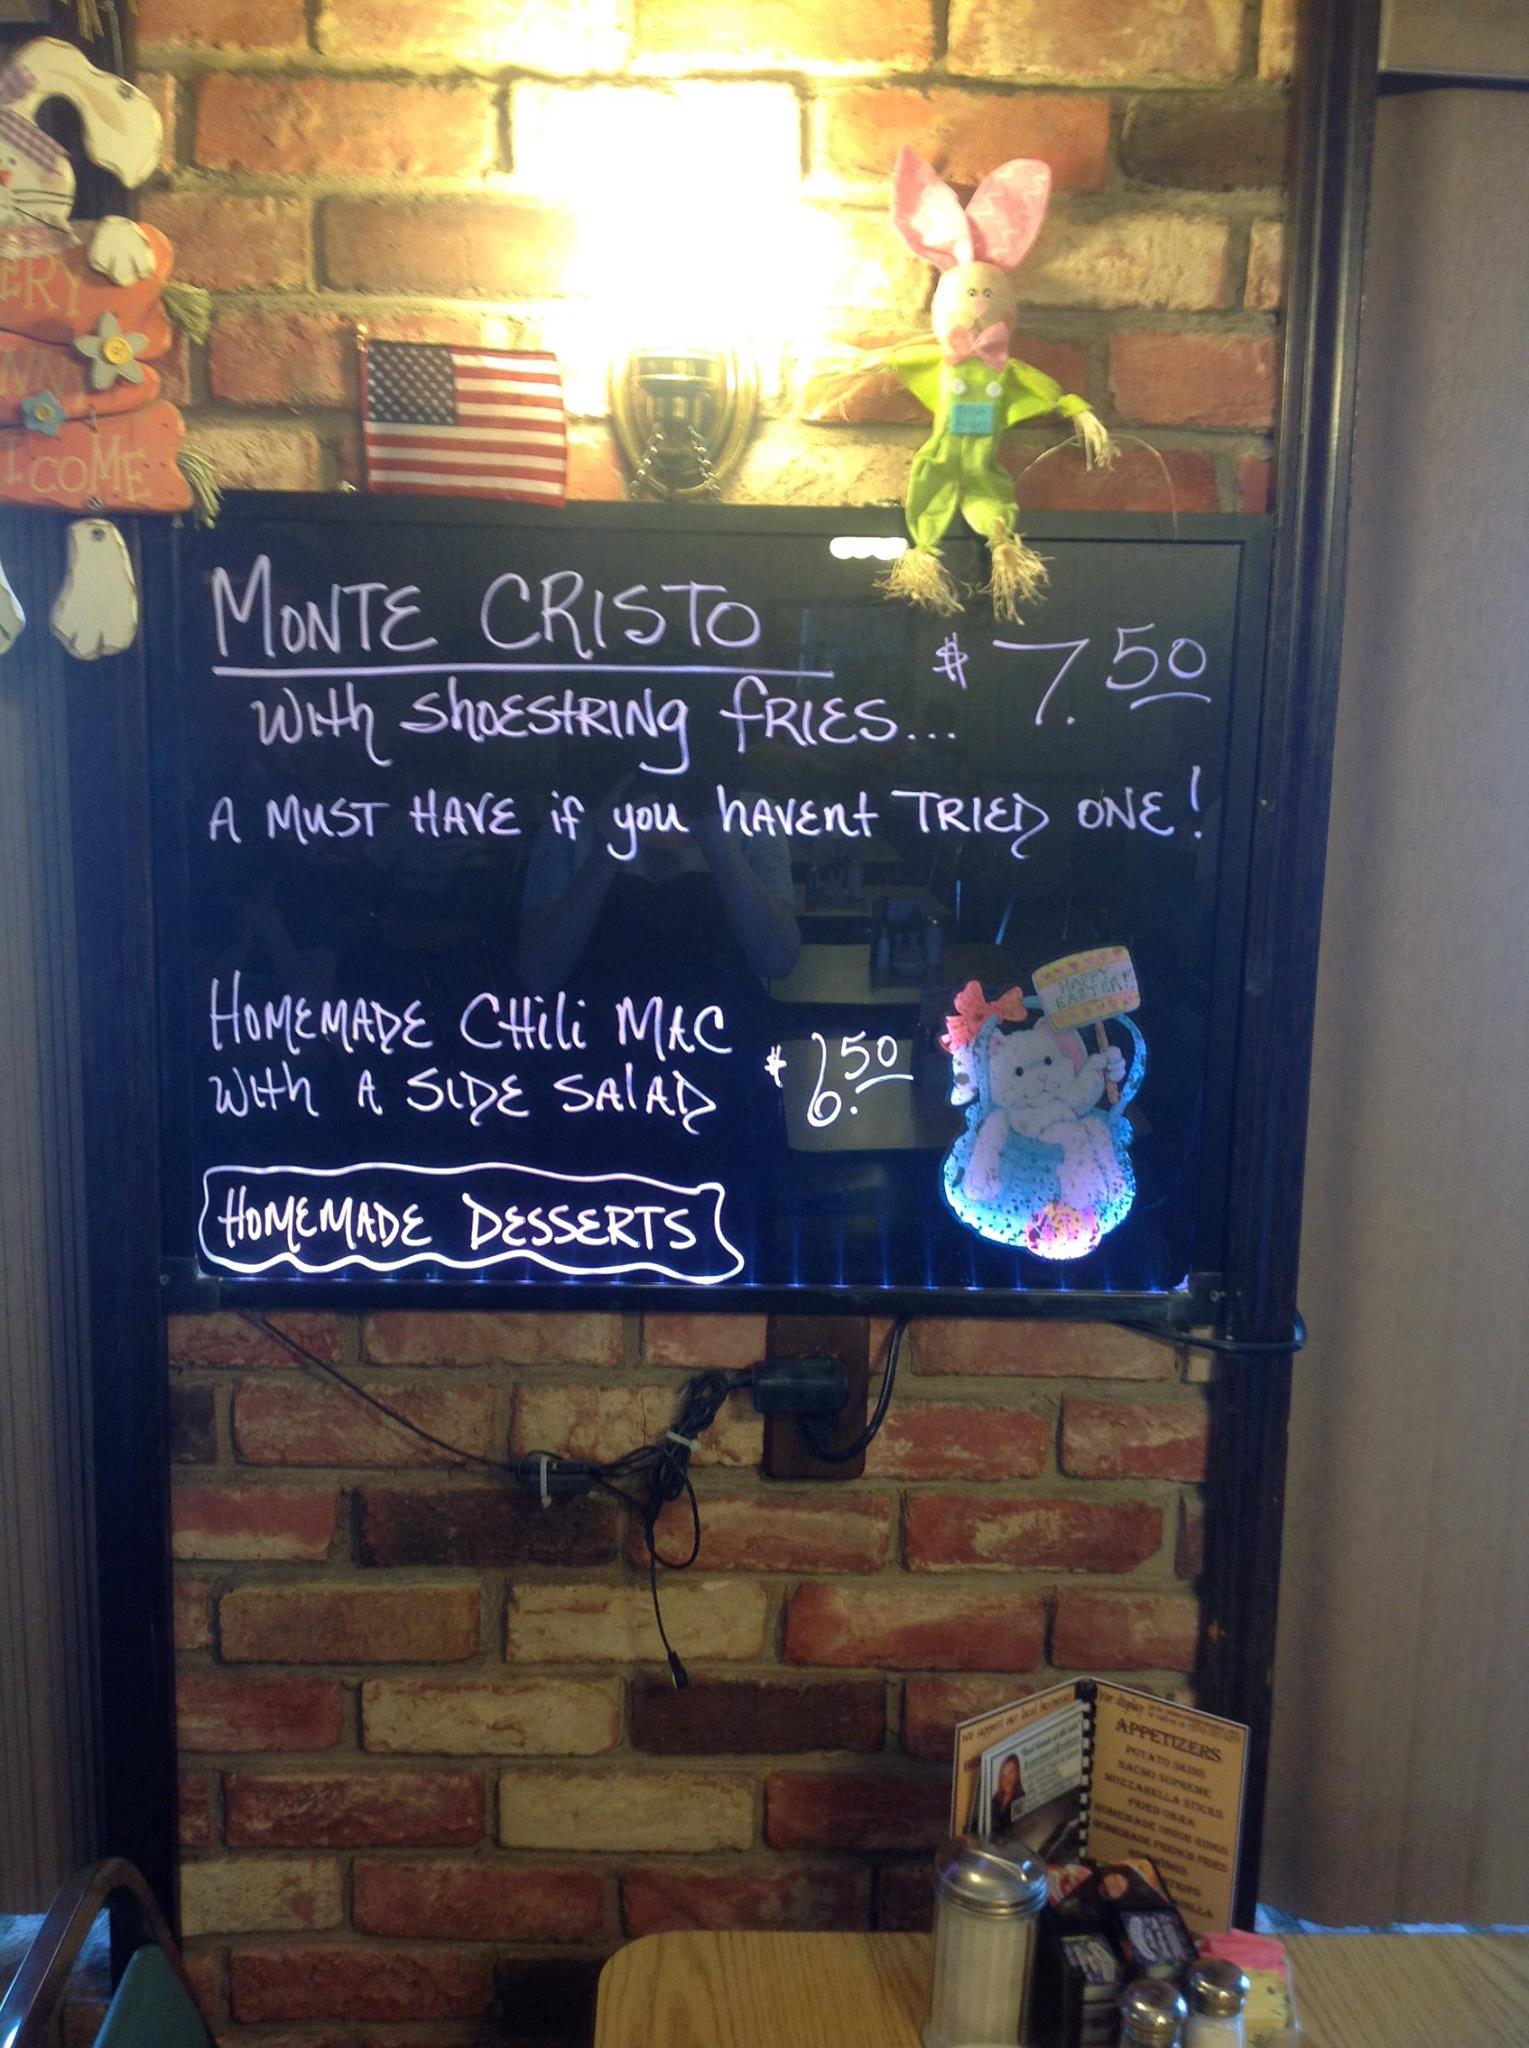 COME
MONTE CRISTO
$7.50
with shoestring fries...
A must have if you havent tried one!
HAPPY
EASTER!
Homemade Chili Mac
with a side salad
$6.50
Homemade Desserts
We support our local
For display
APPETIZERS
POTATO SKINS
NACHO SUPREME
MOZZARELLA STICKS
FRIED OKRA
HOMEMADE ONION RINGS
HOMEMADE FRENCH FRIES